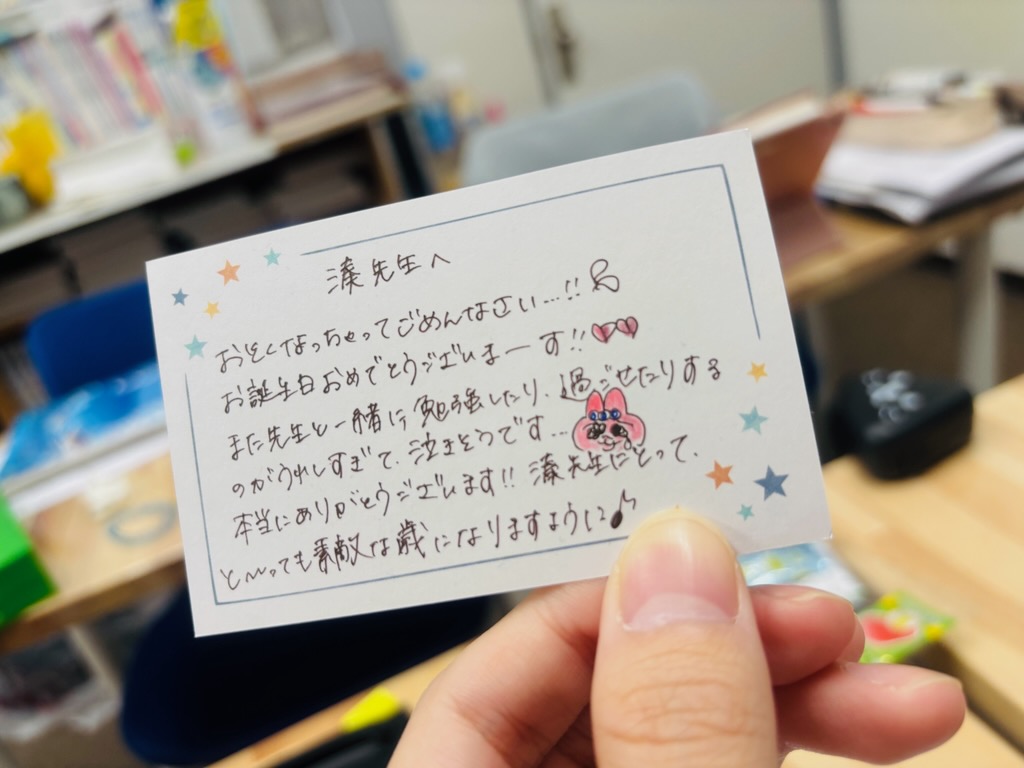 湊先生へ
おそくなっちゃってごめんなさい…!!
お誕生日おめでとうございまーす!!
また先生と一緒に勉強したり、過ごせたりする
のがうれしすぎて、泣きそうです…
本当にありがとうございます!! 湊先生にとって、
と〜っても素敵な歳になりますように♪